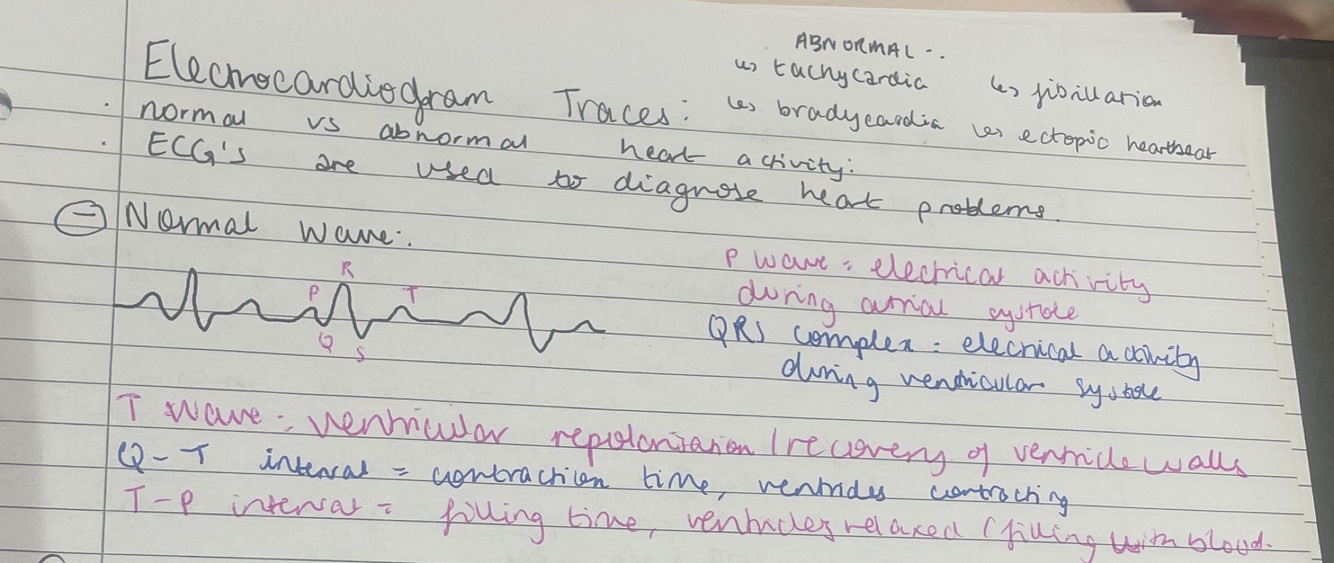 ABNORMAL -.
↳ tachycardia ↳ fibrillation
↳ bradycardia ↳ ectopic heartbeat
Electrocardiogram Traces:
· normal vs abnormal heart activity:
· ECG's are used to diagnose heart problems.
Normal wave:
P R T
Q S
P wave = electrical activity
during atrial systole
QRS complex = elecrical activity
during ventricular systole
T wave = ventricular repolarisation / recovery of ventricle walls
Q-T interval = contraction time, ventricles contracting
T-P interval = filling time, ventricles relaxed (filling with blood.